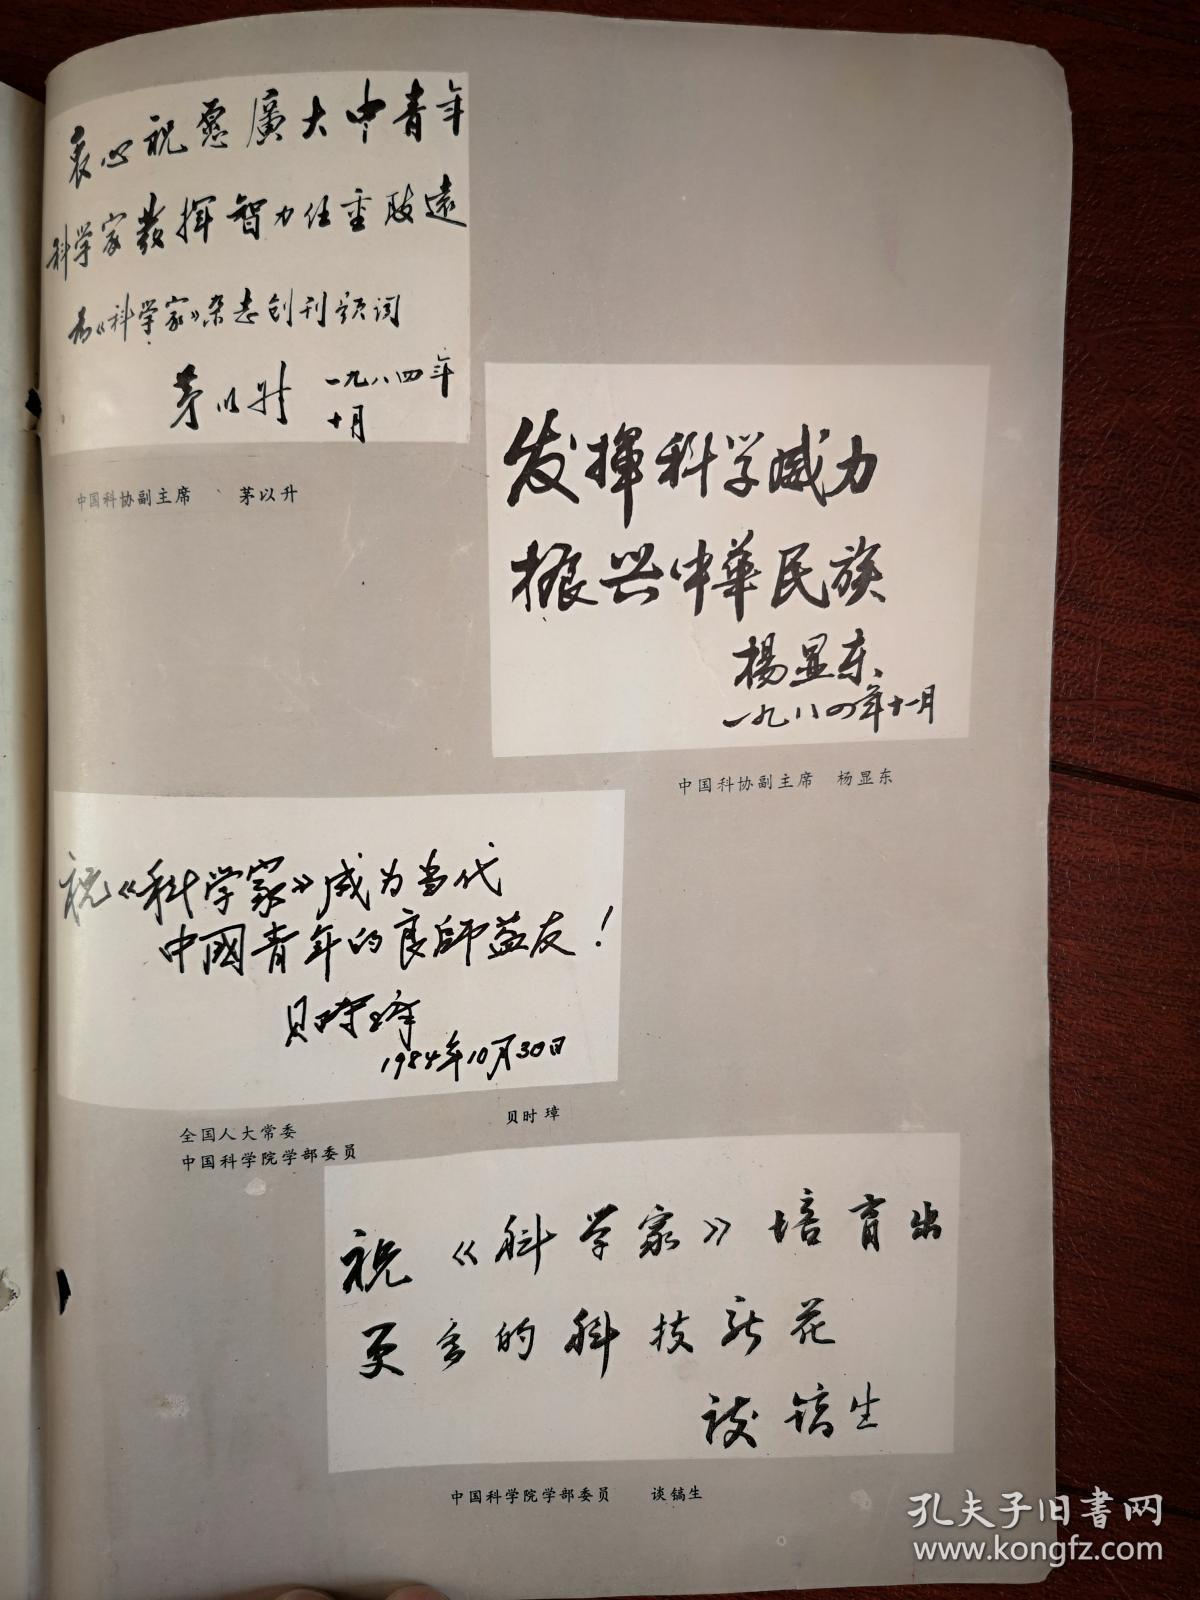 衷心祝愿廣大中青年
科学家發揮智力任重致遠
为《科学家》杂志创刊题词
茅以升 一九八四年
十月
中国科协副主席 茅以升
发揮科学威力
振兴中華民族
楊显东
一九八四年十一月
中国科协副主席 杨显东
祝《科学家》成为当代
中國青年的良師益友!
贝时璋
1984年10月30日
贝时璋
全国人大常委
中国科学院学部委员
祝《科学家》培育出
更多的科技新花
谈镐生
中国科学院学部委员 谈镐生
孔夫子旧书网
www.kongfz.com